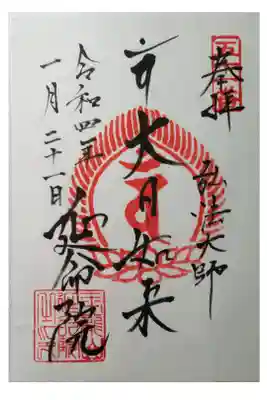 奉拝
弘法大師
大日如来
令和四年
一月二十一日
延命院